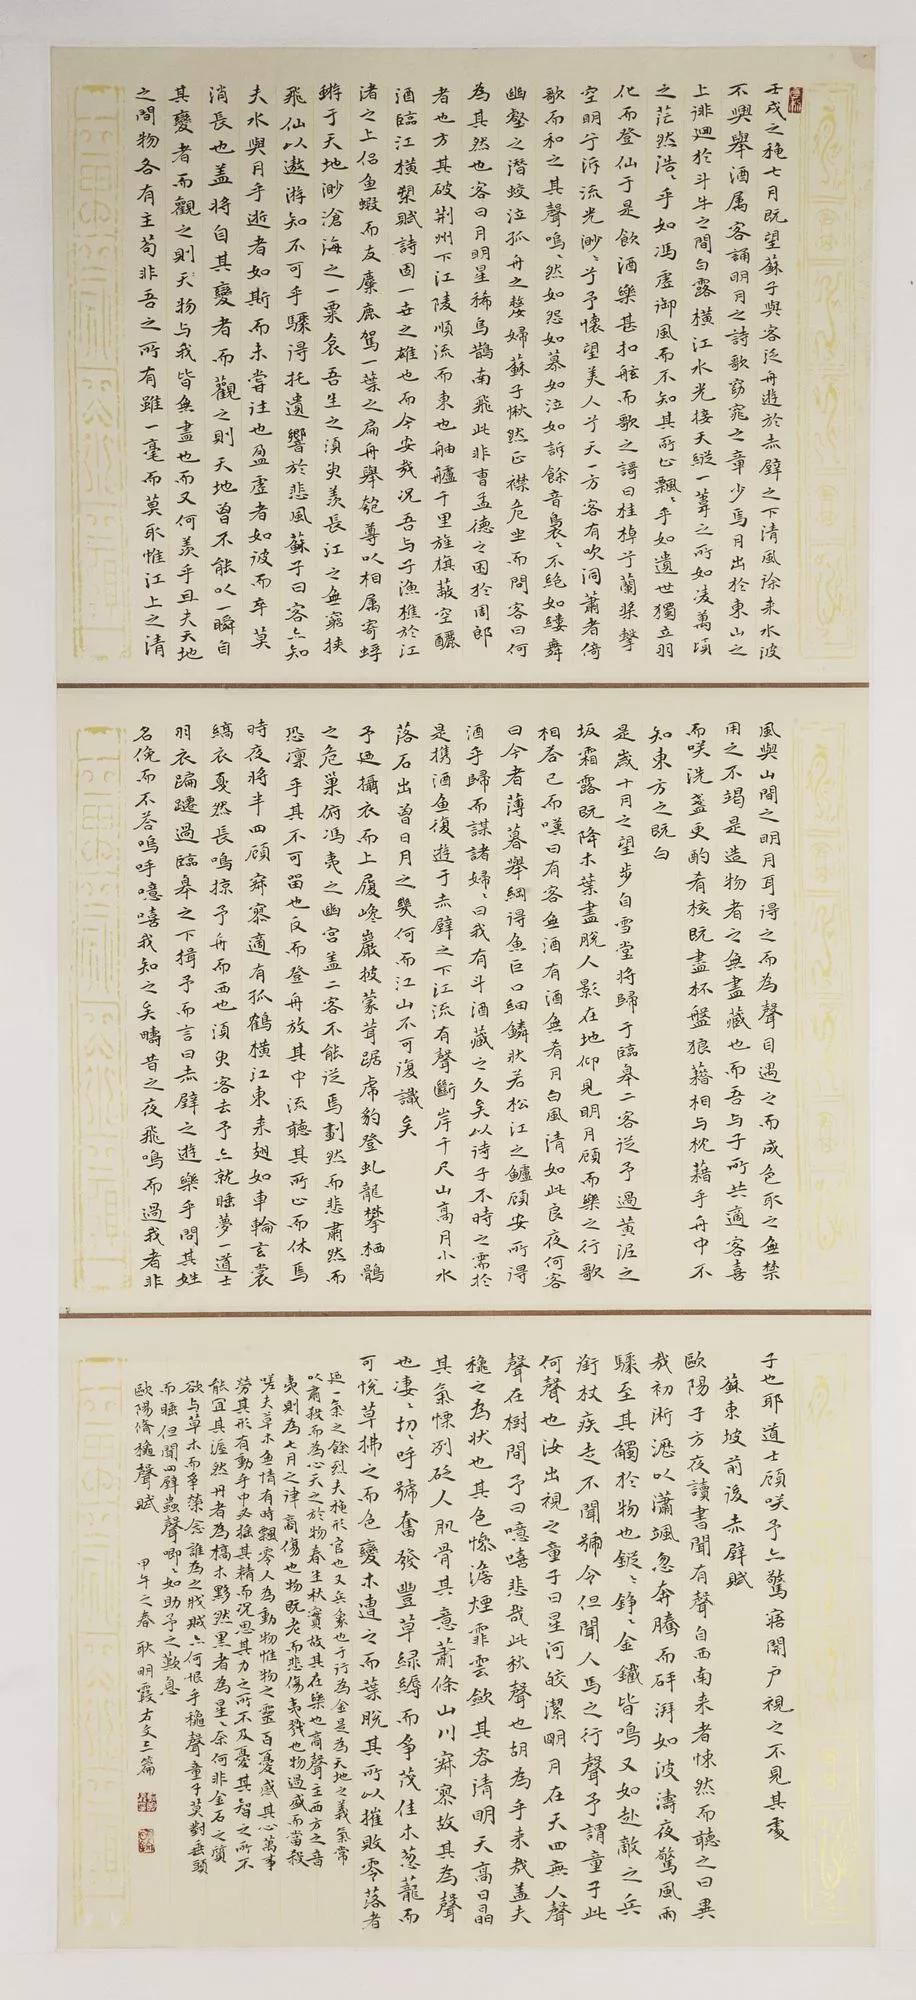 壬戌之穐七月既望蘇子與客泛舟遊於赤壁之下清風徐来水波
不興舉酒属客誦明月之詩歌窈窕之章少焉月出於東山之
上徘廻於斗牛之間白露横江水光接天縱一葦之所如凌萬頃
之茫然浩〻乎如馮虚御風而不知其所止飄〻乎如遺世獨立羽
化而登仙于是飲酒樂甚扣舷而歌之謌曰桂棹兮蘭槳擊
空明兮泝流光渺〻兮予懷望美人兮天一方客有吹洞蕭者倚
歌而和之其聲嗚〻然如怨如慕如泣如訴餘音裊〻不絶如縷舞
幽壑之潛蛟泣孤舟之嫠婦蘇子愀然正襟危坐而問客曰何
為其然也客曰月明星稀烏鵲南飛此非曹孟德之困於周郎
者也方其破荆州下江陵順流而東也舳艫千里旌旗蔽空釃
酒臨江横槊賦詩固一世之雄也而今安哉况吾与子漁樵於江
渚之上侣鱼蝦而友麋鹿駕一葉之扁舟舉匏尊以相属寄蜉
蝣于天地渺滄海之一粟哀吾生之須臾羨長江之無窮挟
飛仙以遨游知不可乎驟得托遺響於悲風蘇子曰客亦知
夫水與月乎逝者如斯而未嘗往也盈虚者如彼而卒莫
消長也盖將自其變者而觀之則天地曾不能以一瞬自
其變者而觀之則天物与我皆無盡也而又何羨乎且夫天地
之間物各有主苟非吾之所有雖一毫而莫取惟江上之清
風與山間之明月耳得之而為聲目遇之而成色取之無禁
用之不竭是造物者之無盡藏也而吾与子所共適客喜
而咲洗盞更酌肴核既盡杯盤狼藉相与枕藉乎舟中不
知東方之既白
是歲十月之望步自雪堂將歸于臨皋二客從予過黄泥之
坂霜露既降木葉盡脱人影在地仰見明月顧而樂之行歌
相荅已而嘆曰有客無酒有酒無肴月白風清如此良夜何客
曰今者薄暮舉網得魚巨口細鱗狀若松江之鱸顧安所得
酒乎歸而謀諸婦〻曰我有斗酒藏之久矣以待子不時之需於
是携酒魚復遊于赤壁之下江流有聲斷岸千尺山高月小水
落石出曾日月之幾何而江山不可復識矣
予廼攝衣而上履巉巖披蒙茸踞虎豹登虬龍攀栖鶻
之危巢俯馮夷之幽宫盖二客不能從焉劃然而悲肅然而
恐凛乎其不可留也反而登舟放其中流聽其所止而休焉
時夜將半四顧寂寥適有孤鶴横江東来翅如車輪玄裳
縞衣戛然長鳴掠予舟而西也須臾客去予亦就睡夢一道士
羽衣蹁躚過臨皋之下揖予而言曰赤壁之遊樂乎問其姓
名俛而不荅嗚呼噫嘻我知之矣疇昔之夜飛鳴而過我者非
子也耶道士顧咲予亦驚寤開户視之不見其處
蘇東坡前後赤壁賦
歐陽子方夜讀書聞有聲自西南来者悚然而聽之曰異
哉初淅瀝以瀟颯忽奔騰而砰湃如波濤夜驚風雨
驟至其觸於物也鏦〻錚〻金鐵皆鳴又如赴敵之兵
銜枚疾走不聞號令但聞人馬之行聲予謂童子此
何聲也汝出視之童子曰星河皎潔明月在天四無人聲
聲在樹間予曰噫嘻悲哉此秋聲也胡為乎来哉盖夫
穐之為狀也其色慘澹煙霏雲斂其容清明天高日晶
其氣慄冽砭人肌骨其意蕭條山川寂寥故其為聲
也凄〻切〻呼號奮發豐草緑縟而争茂佳木葱蘢而
可悦草拂之而色變木遭之而葉脱其所以摧敗零落者
廼一氣之餘烈夫穐刑官也又兵象也于行為金是為天地之義氣常
以肅殺而為心天之於物春生秋實故其在樂也商聲主西方之音
夷則為七月之律商傷也物既老而悲傷夷戮也物過盛而當殺
嗟夫草木無情有時飄零人為動物惟物之靈百憂感其心萬事
勞其形有動乎中必揺其精而况思其力之所不及憂其智之所不
能宜其渥然丹者為槁木黟然黑者為星〻奈何非金石之質
欲与草木而争榮念誰為之戕賊亦何恨乎穐聲童子莫對垂頭
而睡但聞四壁蟲聲唧〻如助予之歎息
歐陽脩穐聲賦 甲午之春耿明霞右文三篇